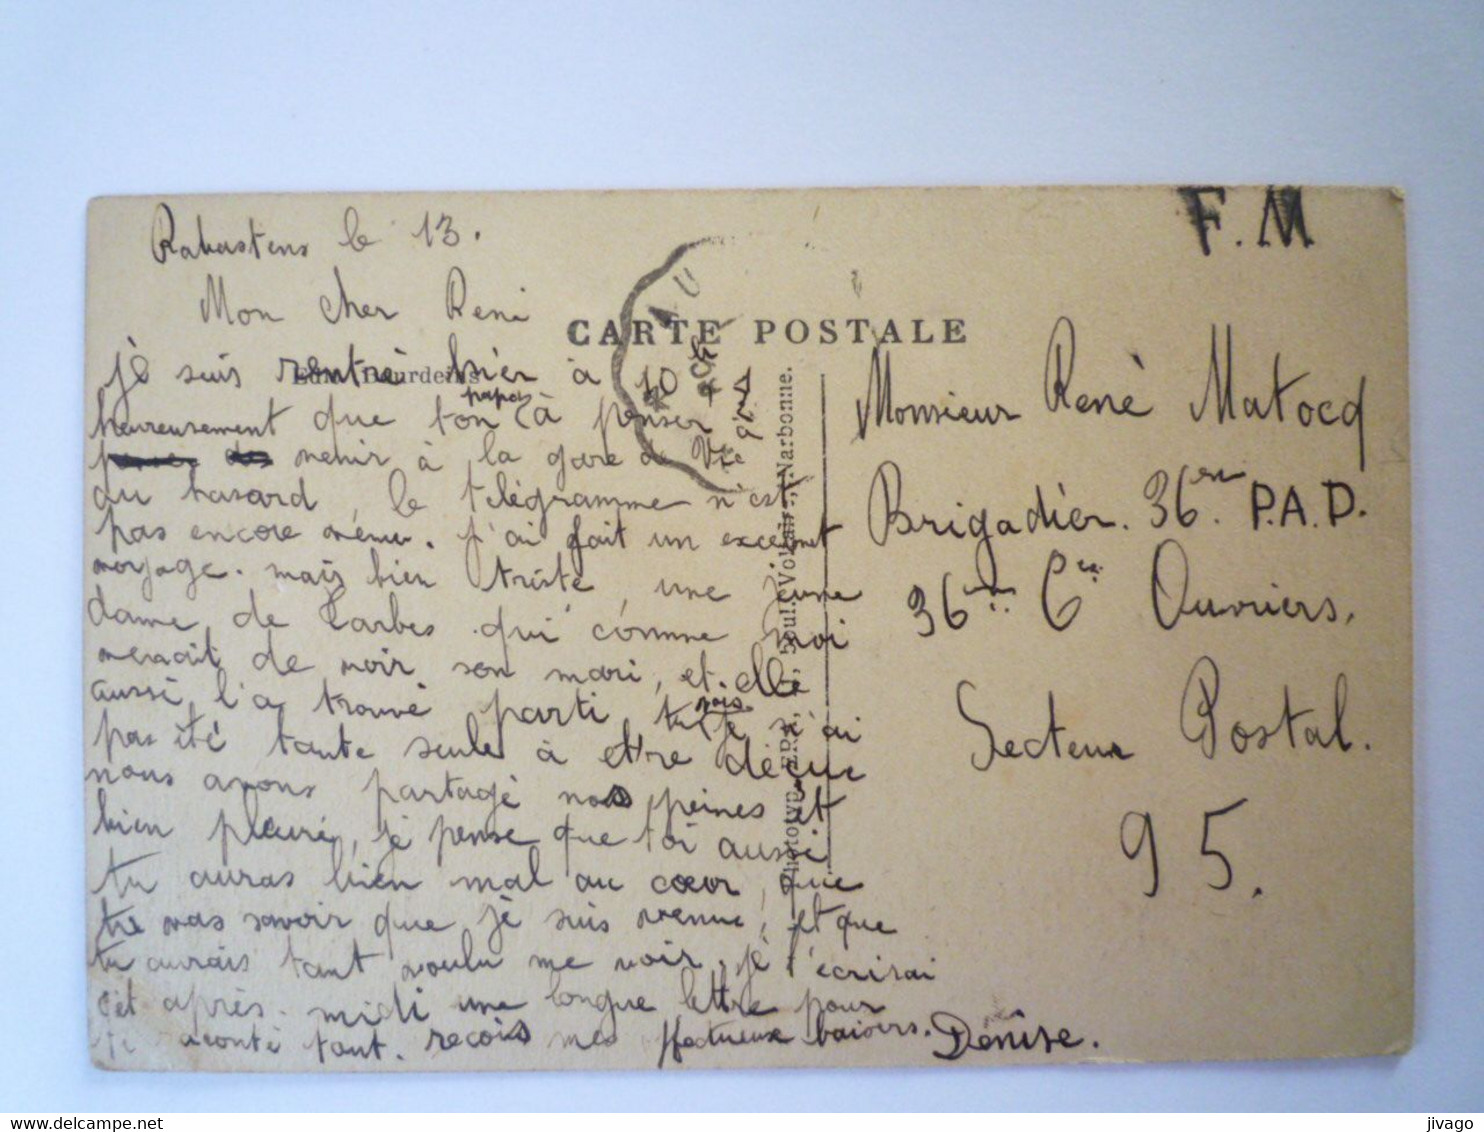 Rabastens le 13.
Mon cher René
je suis rentrè hier à 10
heureusement que ton papa à penser
venir à la gare
au hasard, le telégramme n'est
pas encore venu. J'ai fait un excelent
voyage. mais bien triste, une jeune
dame de Tarbes qui comme moi
venait de voir son mari, et elle
aussi l'a trouvé parti, tu vois je n'ai
pas été toute seule à etre déçue
nous avons partagé nos peines et
bien pleuré, je pense que toi aussi
tu auras bien mal au cœur, que
tu vas savoir que je suis venue, et que
tu aurais tant voulu me voir, je t'écrirai
cet après-midi une longue lettre pour
te raconté tout. recois mes affectueux baisers. Denise.
CARTE POSTALE
Phototyp. Narbonne.
F.M
Monsieur Renè Matocq
Brigadièr. 36em P.A.D.
36em Cie Ouvriers.
Secteur Postal.
95.
jivago